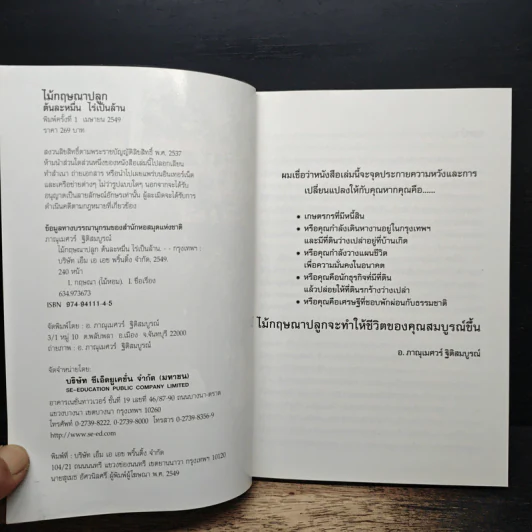 ไม้กฤษณาปลูก
ต้นละหมื่น ไร่เป็นล้าน
พิมพ์ครั้งที่ 1 เมษายน 2549
ราคา 269 บาท
สงวนลิขสิทธิ์ตามพระราชบัญญัติลิขสิทธิ์ พ.ศ. 2537
ห้ามนำส่วนใดส่วนหนึ่งของหนังสือเล่มนี้ไปลอกเลียน
ทำสำเนา ถ่ายเอกสาร หรือนำไปเผยแพร่บนอินเทอร์เน็ต
และเครือข่ายต่างๆ ไม่ว่ารูปแบบใดๆ นอกจากจะได้รับ
อนุญาตเป็นลายลักษณ์อักษรเท่านั้น ผู้ละเมิดจะได้รับการ
ดำเนินคดีตามกฎหมายที่เกี่ยวข้อง
ข้อมูลทางบรรณานุกรมของสำนักหอสมุดแห่งชาติ
ภาณุเมศวร์ ฐิติสมบูรณ์
ไม้กฤษณาปลูก ต้นละหมื่น ไร่เป็นล้าน. - - กรุงเทพฯ :
บริษัท เอ็ม เอ เอช พริ้นติ้ง จำกัด, 2549.
240 หน้า
1. กฤษณา (ไม้หอม) 1. ชื่อเรื่อง
634.973673
ISBN 974-94111-4-5
จัดพิมพ์โดย : อ. ภาณุเมศวร์ ฐิติสมบูรณ์
3/1 หมู่ 10 ต.พลับพลา อ.เมือง จ.จันทบุรี 22000
ถ่ายภาพ : อ. ภาณุเมศวร์ ฐิติสมบูรณ์
จัดจำหน่ายโดย
บริษัท ซีเอ็ดยูเคชั่น จำกัด (มหาชน)
SE-EDUCATION PUBLIC COMPANY LIMITED
อาคารเนชั่นทาวเวอร์ ชั้นที่ 19 เลขที่ 46/87-90 ถนนบางนา-ตราด
แขวงบางนา เขตบางนา กรุงเทพฯ 10260
โทรศัพท์ 0-2739-8222, 0-2739-8000 โทรสาร 0-2739-8356-9
http://www.se-ed.com
พิมพ์ที่ : บริษัท เอ็ม เอ เอช พริ้นติ้ง จำกัด
104/21 ถนนนนทรี แขวงช่องนนทรี เขตยานนาวา กรุงเทพฯ 10120
นายสุเมธ อัศวนิลศรี ผู้พิมพ์ผู้โฆษณา พ.ศ. 2549
ผมเชื่อว่าหนังสือเล่มนี้จะจุดประกายความหวังและการ
เปลี่ยนแปลงให้กับคุณหากคุณคือ......
• เกษตรกรที่มีหนี้สิน
• หรือคุณกำลังเดินหางานอยู่ในกรุงเทพฯ
และมีที่ดินว่างเปล่าอยู่ที่บ้านเกิด
• หรือคุณกำลังวางแผนชีวิต
เพื่อความมั่นคงในอนาคต
• หรือคุณคือนักธุรกิจที่มีที่ดิน
แล้วปล่อยให้ที่ดินรกร้างว่างเปล่า
• หรือคุณคือเศรษฐีที่ชอบพักผ่อนกับธรรมชาติ
ไม้กฤษณาปลูกจะทำให้ชีวิตของคุณสมบูรณ์ขึ้น
อ. ภาณุเมศวร์ ฐิติสมบูรณ์